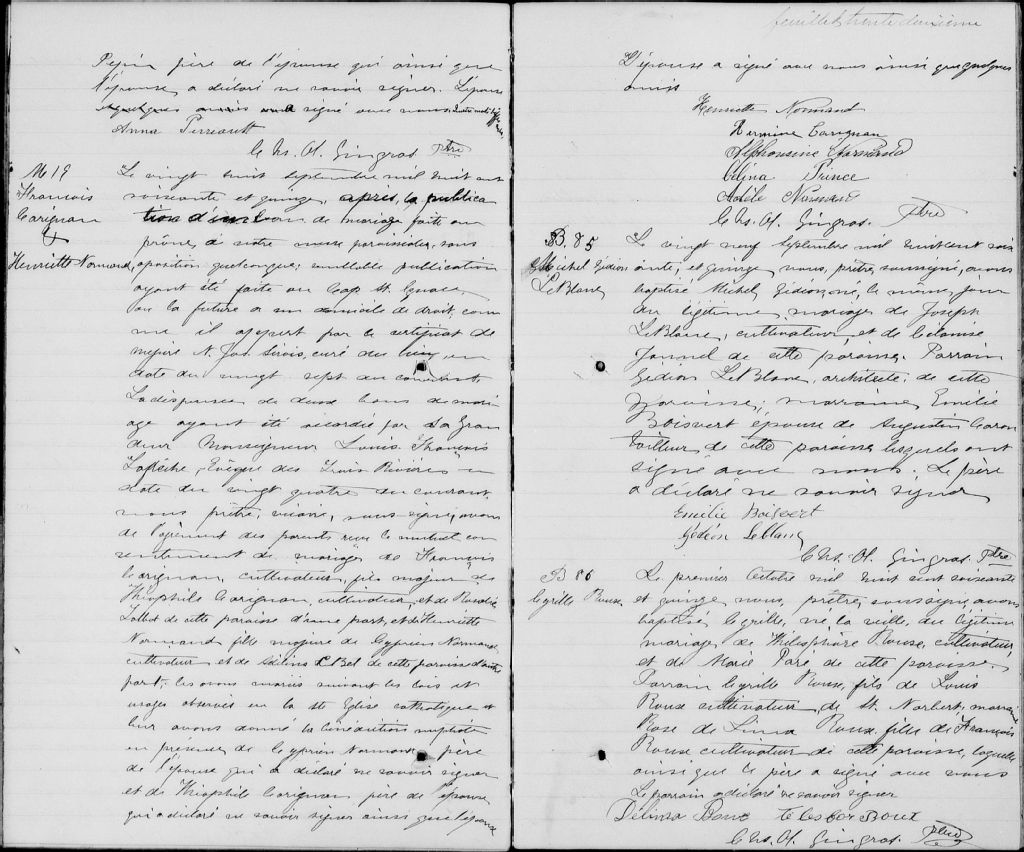 Pepin père de l'épouse qui ainsi que
l'épouse a déclaré ne savoir signer. L'époux
signé avec nous.
Anna Perreault
Chs. O. Gingras Ptre
M 19
François
Carignan
&
Henriette Normand
Le vingt huit septembre mil huit cent
soixante et quinze, après la publica
tion d'un ban de mariage faite au
prône de notre messe paroissiale, sans
oposition quelconque; semblable publication
ayant été faite au Cap St. Ignace
où la future a un domicile de droit, com
me il appert par le certificat de
messire N. Jos Sirois, curé du lieu, en
date du vingt sept du courant.
La dispense de deux bans de mari
age ayant été accordée par Sa Gran
deur Monseigneur Louis François
Laflèche, Evêque des Trois Rivières en
date du vingt quatre du courant
nous prêtre, vicaire, sous-signé, avons
de l'agrément des parents reçu le mutuel con
sentement de mariage de François
Carignan, cultivateur, fils majeur de
Théophile Carignan, cultivateur, et de Rosalie
Talbot de cette paroisse d'une part, et de Henriette
Normand fille majeure de Cyprien Normand
cultivateur et de LeBel de cette paroisse d'autre
part; les avons mariés suivant les lois et
usages observés en la Ste Eglise catholique et
leur avons donné la bénédiction nuptiale
en présence de Cyprien Normand père
de l'épouse qui a déclaré ne savoir signer
et de Théophile Carignan père de l'époux
qui a déclaré ne savoir signer ainsi que l'époux
feuillet trente deuxième
L'épouse a signé avec nous ainsi que quelques
amis
Henriette Normand
Hermine Carignan
Alphonsine Normand
Célina Prince
Adèle Normand
Chs. O. Gingras. Ptre
B. 85
Michel Gédéon
LeBlanc
Le vingt neuf Septembre mil huit cent soix
ante, et quinze nous, prêtre, soussigné, avons
baptisé Michel Gédéon, né, le même jour
du légitime mariage de Joseph
LeBlanc, cultivateur, et de
de cette paroisse. Parrain
Gédéon LeBlanc, architecte, de cette
paroisse; marraine, Emilie
Boisvert épouse de Augustin Caron
tailleur de cette paroisse lesquels ont
signé avec nous. Le père
a déclaré ne savoir signer
Emélie Boisvert
Gédéon Leblanc
Chs. O. Gingras. Ptre
B 86
Cyrille Roux
Le premier Octobre mil huit cent soixante
et quinze nous, prêtre, soussigné, avons
baptisé Cyrille, né, la veille, du légitime
mariage de Thélésphore Roux, cultivateur,
et de Marie Paré de cette paroisse.
Parrain Cyrille Roux, fils de Louis
Roux cultivateur de St. Norbert, marraine
Rose de Lima Roux fille de François
Roux cultivateur de cette paroisse, laquelle
ainsi que le père a signé avec nous
Le parrain a déclaré ne savoir signer
Délima Roux Telesfor Roux
Chs. O. Gingras. Ptre